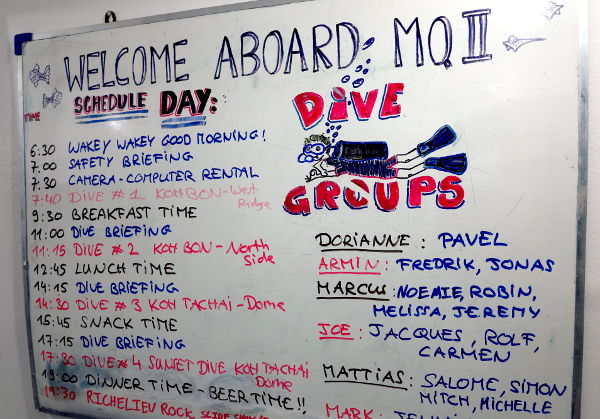 WELCOME ABOARD MQ II
SCHEDULE DAY:
TIME
6:30 WAKEY WAKEY GOOD MORNING!
7:00 SAFETY BRIEFING
7:30 CAMERA - COMPUTER RENTAL
7:40 DIVE # 1 KOH BON - West
Ridge
9:30 BREAKFAST TIME
11:00 DIVE BRIEFING
11:15 DIVE # 2 KOH BON - North
Side
12:45 LUNCH TIME
14:15 DIVE BRIEFING
14:30 DIVE # 3 KOH TACHAI - Dome
15:45 SNACK TIME
17:15 DIVE BRIEFING
17:30 DIVE # 4 SUNSET DIVE KOH TACHAI
Dome
19:00 DINNER TIME - BEER TIME!!
19:30 RICHELIEU ROCK SLIDE SHOW
DIVE
GROUPS
DORIANNE: PAVEL
ARMIN: FREDRIK, JONAS
MARCUS: NOEMIE, ROBIN,
MELISSA, JEREMY
JOE: JACQUES, ROLF,
CARMEN
MATTIAS: SALOME, SIMON
MITCH, MICHELLE
MARK: